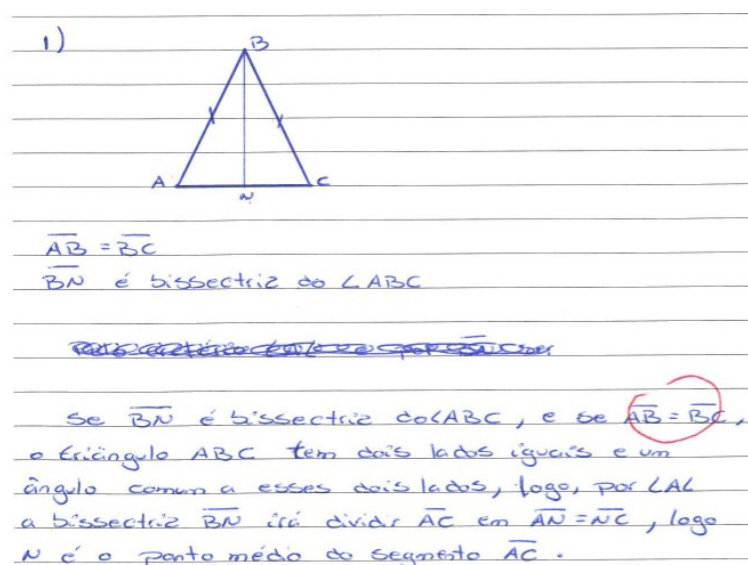 1)
B
A
C
N
AB = BC
BN é bissectriz do ∠ABC
Se BN é bissectriz do∠ABC, e se AB = BC,
o triângulo ABC tem dois lados iguais e um
ângulo comun a esses dois lados, logo, por LAL
a bissectriz BN irá dividir AC em AN = NC, logo
N é o ponto médio do segmento AC.